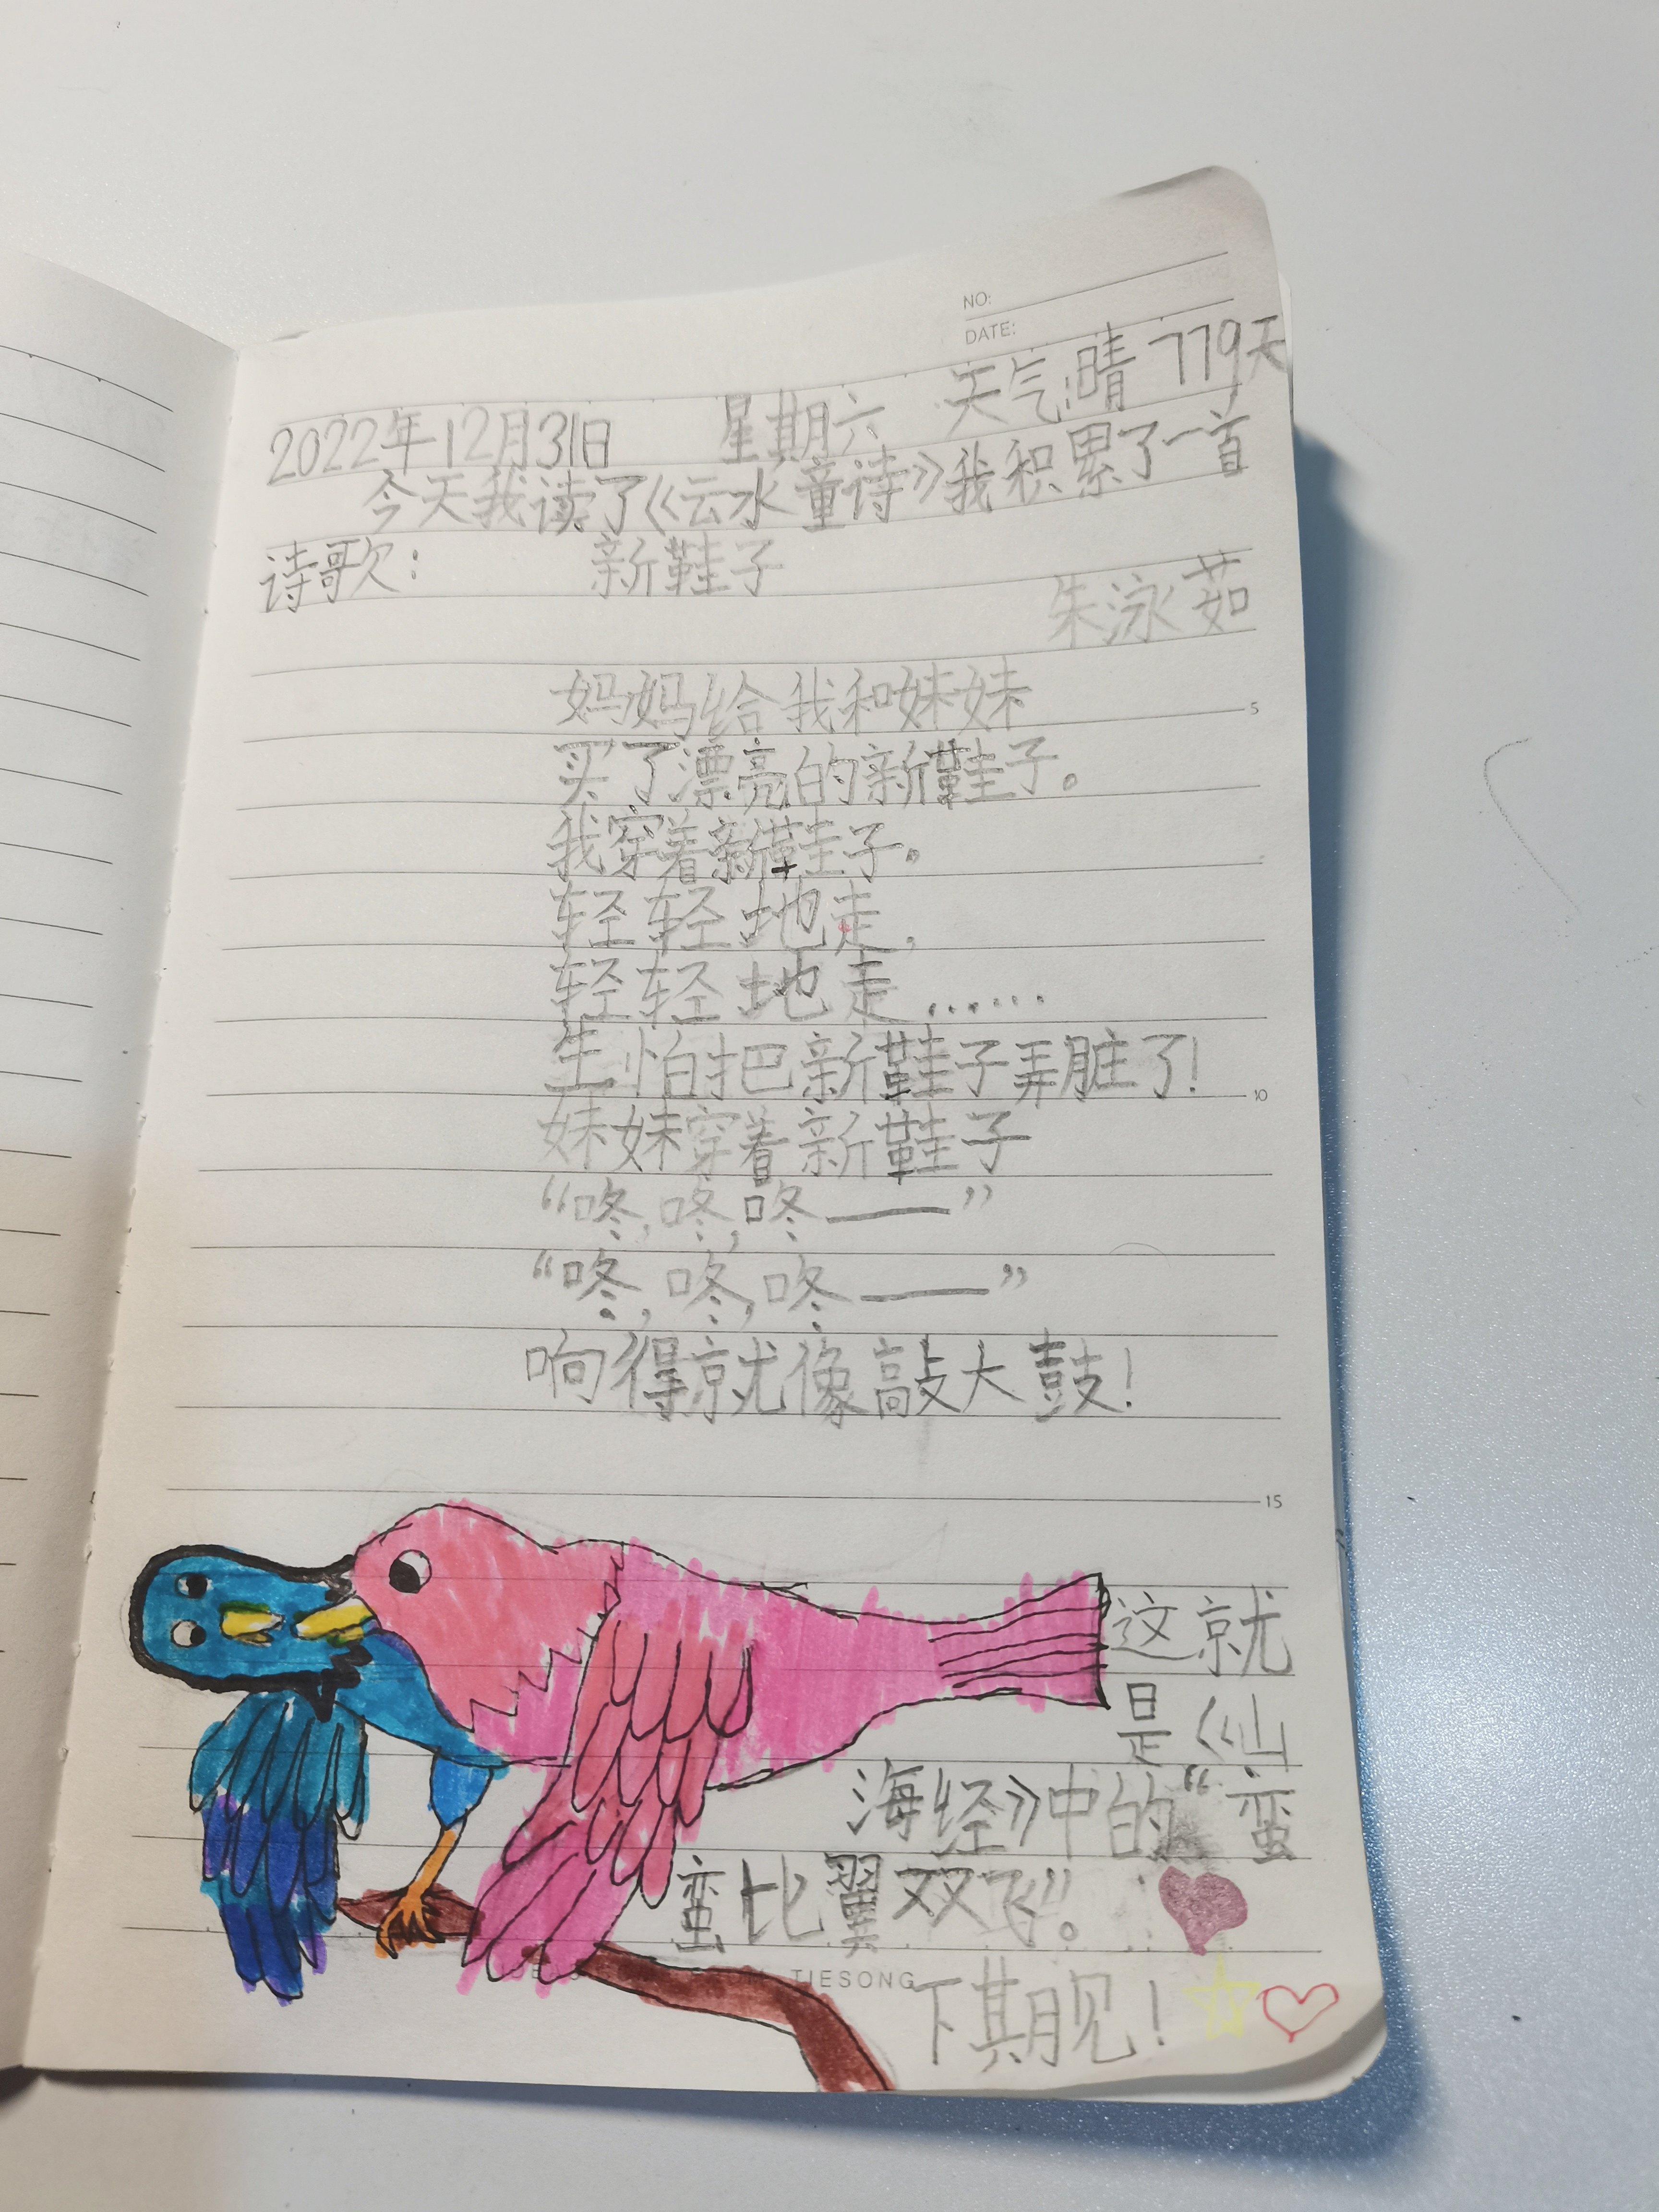 NO:
DATE:
2022年12月31日 星期六 天气:晴 779天
今天我读了《云水童诗》我积累了一首
诗歌: 新鞋子
朱泳茹
妈妈给我和妹妹
买了漂亮的新鞋子。
我穿着新鞋子。
轻轻地走,
轻轻地走……
生怕把新鞋子弄脏了!
妹妹穿着新鞋子
“咚,咚,咚——”
“咚,咚,咚——”
响得就像敲大鼓!
这就
是《仙
海经》中的“蛮
蛮比翼双飞”。
TIESONG
下期见!
5
10
15